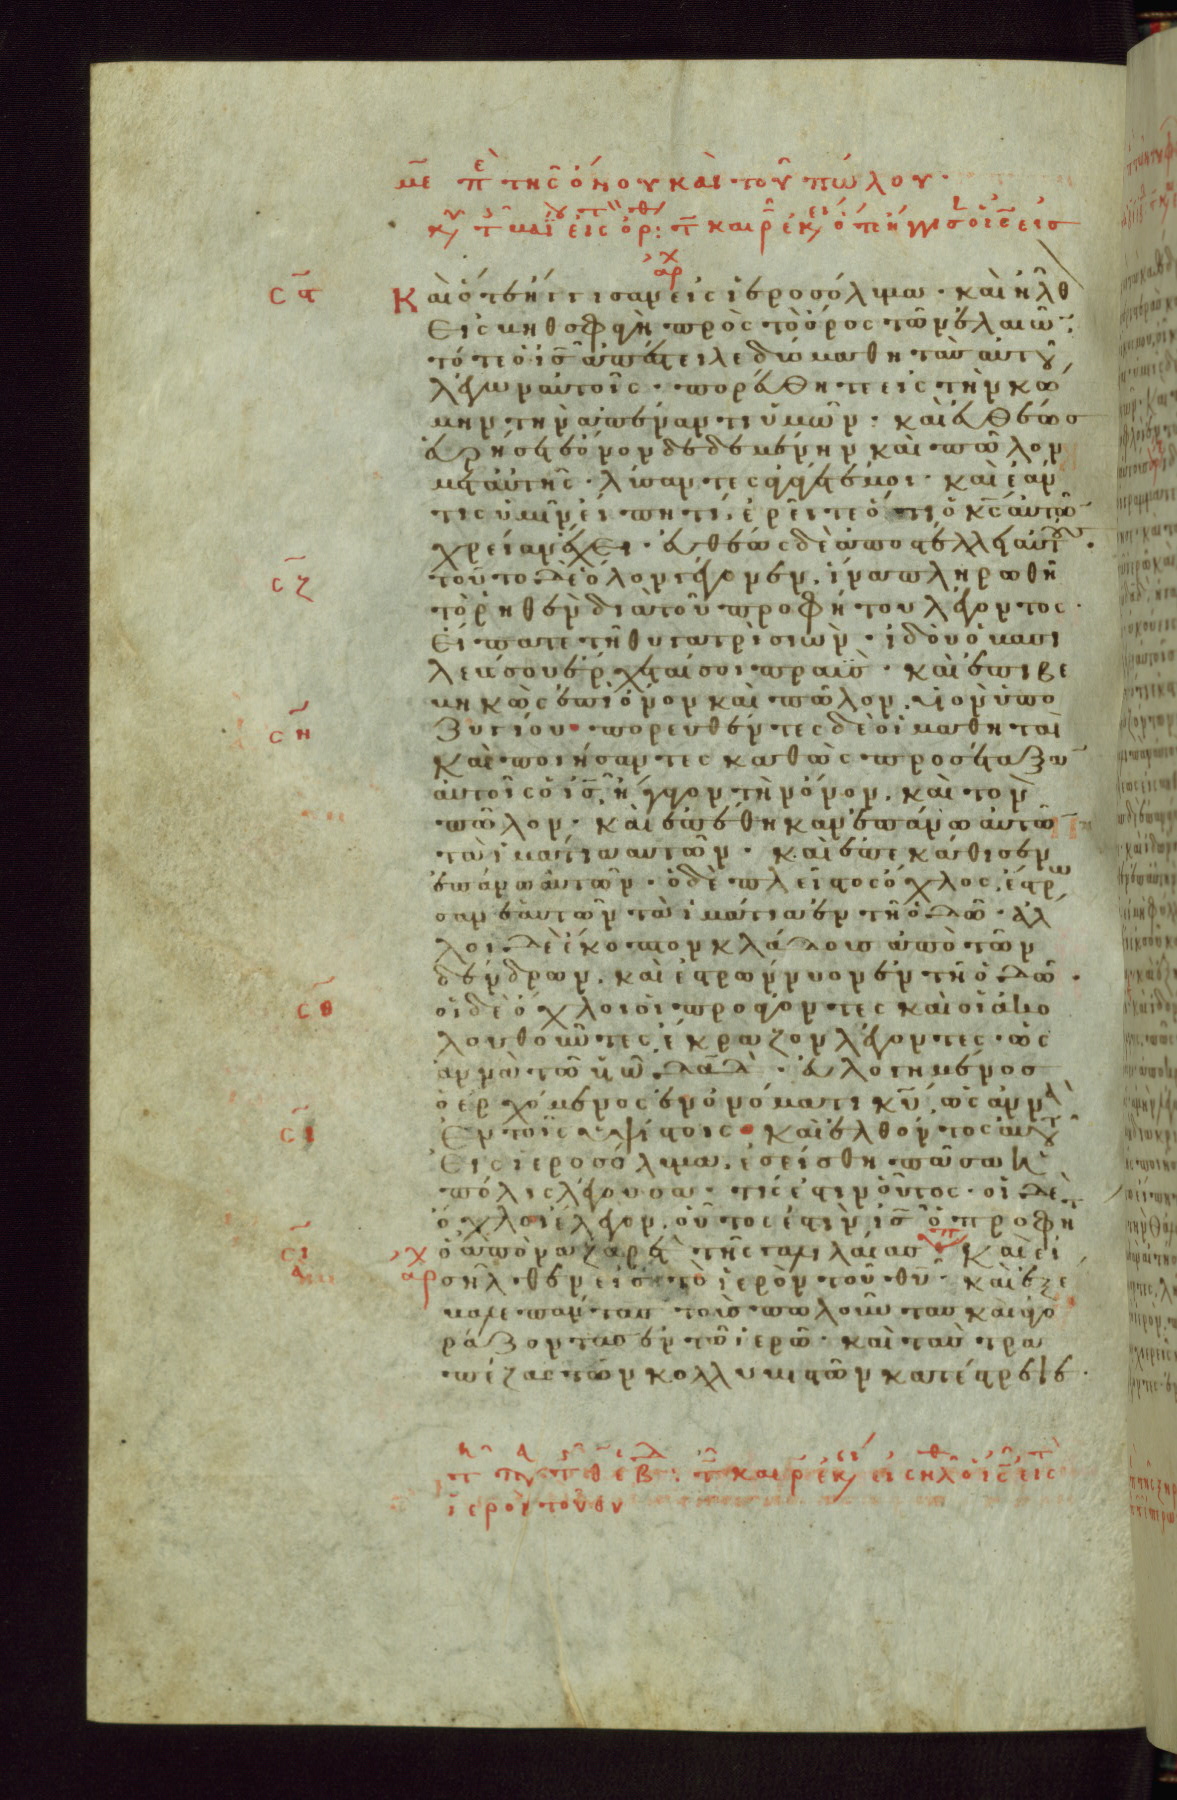 με περὶ τῆς ὄνου καὶ τοῦ πώλου·
Καὶ ὅτε ἤγγισαν εἰς ἱεροσόλυμα· καὶ ἦλθον
εἰς βηθσφαγὴ πρὸς τὸ ὄρος τῶν ἐλαιῶν·
τότε ὁ ις ἀπέστειλε δύο μαθητὰς αὐτοῦ
λέγων αὐτοῖς· πορεύθητε εἰς τὴν κώ
μην τὴν ἀπέναντι ὑμῶν· καὶ εὐθέως
εὑρήσετε ὄνον δεδεμένην καὶ πῶλον
μετ αὐτῆς· λύσαντες ἀγάγετέ μοι· καὶ ἐάν
τις ὑμῖν εἴπῃ τί, ἐρεῖτε ὅτι ὁ κς αὐτῶν
χρείαν ἔχει· εὐθέως δὲ ἀποστέλλει αὐτούς·
τοῦτο δὲ ὅλον γέγονεν, ἵνα πληρωθῇ
τὸ ῥηθὲν διὰ τοῦ προφήτου λέγοντος·
Εἴπατε τῇ θυγατρὶ σιών· ἰδοὺ ὁ βασι
λεύς σου ἔρχεταί σοι πραΰς· καὶ ἐπιβε
βηκὼς ἐπὶ ὄνον καὶ πῶλον, υἱὸν ὑπο
ζυγίου· πορευθέντες δὲ οἱ μαθηταὶ
καὶ ποιήσαντες καθὼς προσέταξεν
αὐτοῖς ὁ ις, ἤγαγον τὴν ὄνον, καὶ τὸν
πῶλον· καὶ ἐπέθηκαν ἐπάνω αὐτῶν
τὰ ἱμάτια αὐτῶν· καὶ ἐπεκάθισεν
ἐπάνω αὐτῶν· ὁ δὲ πλεῖστος ὄχλος, ἔστρω
σαν ἑαυτῶν τὰ ἱμάτια ἐν τῇ ὁδῷ· ἄλ
λοι δὲ ἔκοπτον κλάδους ἀπὸ τῶν
δένδρων, καὶ ἐστρώννυον ἐν τῇ ὁδῷ·
οἱ δὲ ὄχλοι οἱ προάγοντες καὶ οἱ ἀκο
λουθοῦντες, ἔκραζον λέγοντες· ὡς
αννὰ τῷ υἱῷ δαδ· εὐλογημένος
ὁ ἐρχόμενος ἐν ὀνόματι κυ, ὡς αννὰ
ἐν τοῖς ὑψίστοις· καὶ ἐλθόντος αὐτοῦ
εἰς ἱεροσόλυμα, ἐσείσθη πᾶσα ἡ
πόλις λέγουσα· τίς ἐστιν οὗτος· οἱ δὲ
ὄχλοι ἔλεγον, οὗτος ἐστιν ις ὁ προφή
ὁ ἀπὸ ναζαρὲτ τῆς γαλιλαίας· Καὶ εἰ
σῆλθεν εἰς τὸ ἱερὸν τοῦ θυ· καὶ ἐξέ
βαλε πάντας τοὺς πωλοῦντας καὶ ἀγο
ράζοντας ἐν τῷ ἱερῷ· καὶ τὰς τρα
πέζας τῶν κολλυβιστῶν κατέστρεψε·
ἱερὸν τοῦ θυ